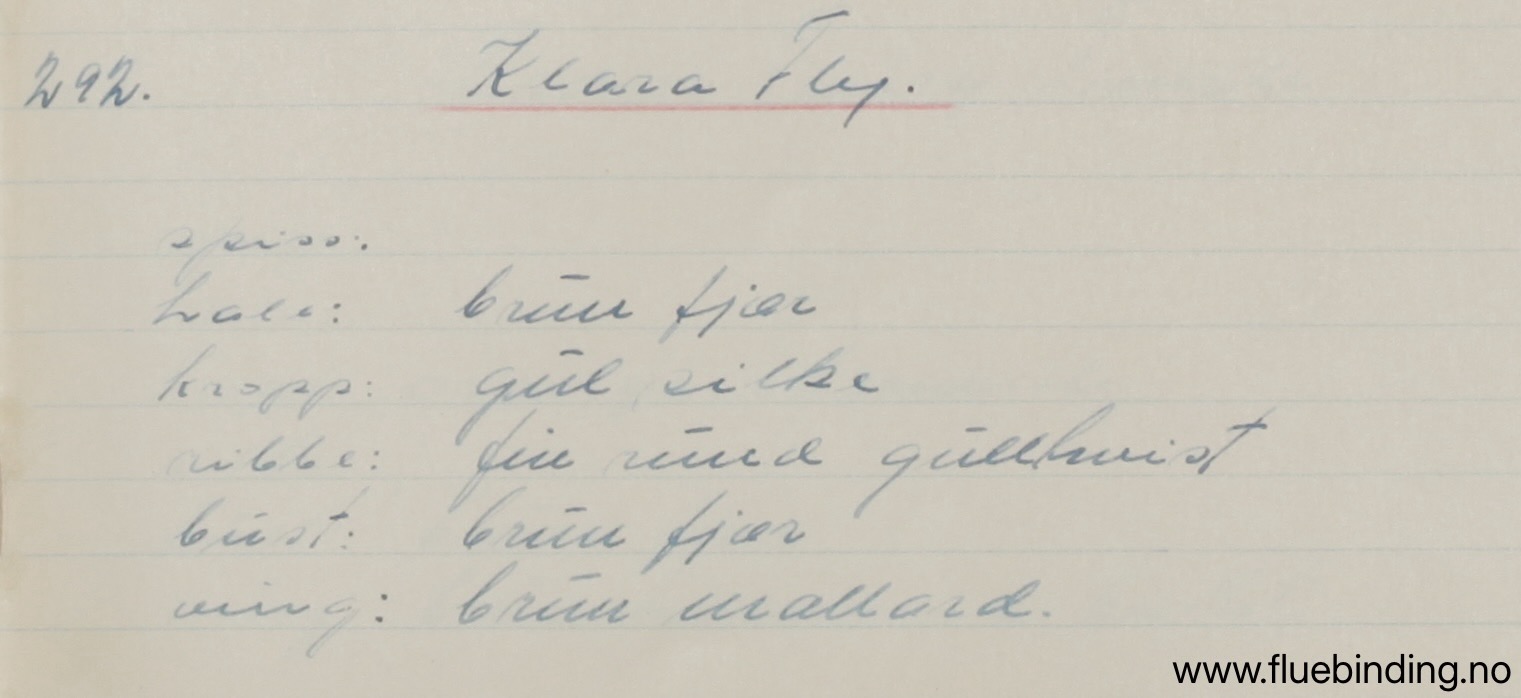 292. Klara Fly.
spiss:
hale: brun fjær
kropp: gul silke
ribbe: fin rund gulltwist
bust: brun fjær
ving: brun mallard.
www.fluebinding.no